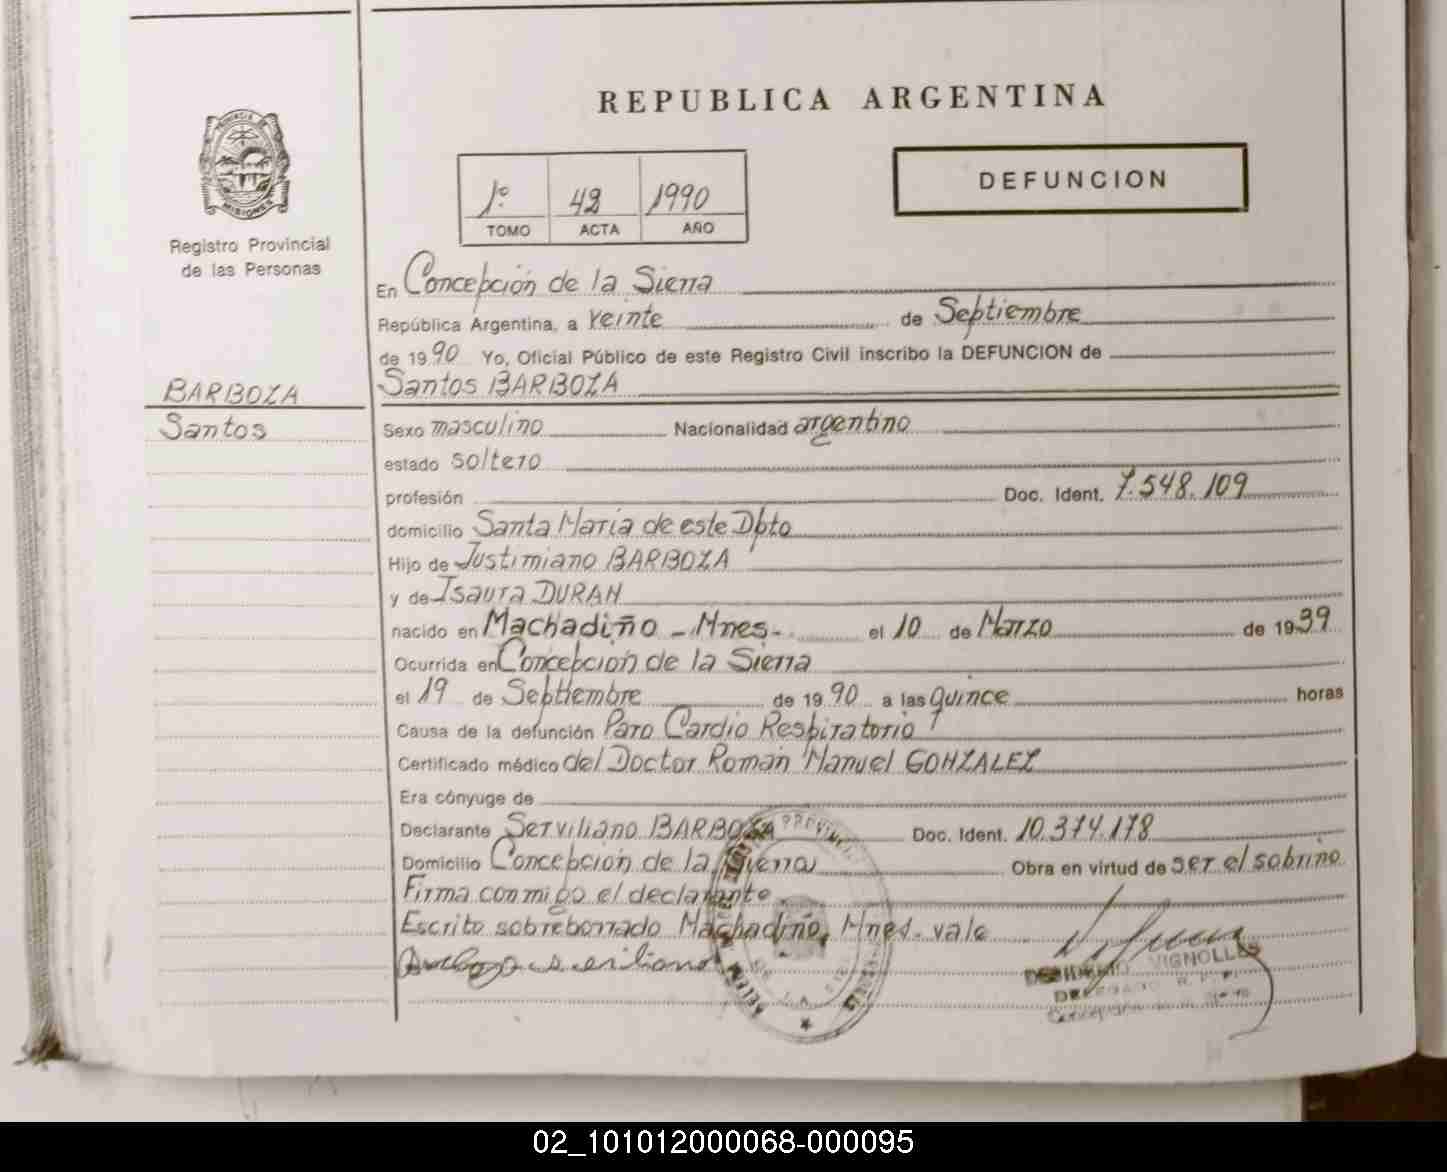 REPUBLICA ARGENTINA
PROVINCIA DE
MISIONES
Registro Provincial
de las Personas
1º 42 1990
TOMO ACTA AÑO
DEFUNCION
En Concepción de la Sierra
República Argentina, a veinte de Septiembre
de 1990 Yo, Oficial Público de este Registro Civil inscribo la DEFUNCION de
BARBOZA
Santos BARBOZA
Santos
Sexo masculino Nacionalidad argentino
estado soltero
profesión Doc. Ident. 7.548.109
domicilio Santa María de este Dpto
Hijo de Justimiano BARBOZA
y de Isaura DURAN
nacido en Machadiño - Mnes- el 10 de Marzo de 1939
Ocurrida en Concepción de la Sierra
el 19 de Septiembre de 1990 a las quince horas
Causa de la defunción Paro Cardio Respiratorio
Certificado médico del Doctor Román Manuel GONZALEZ
Era cónyuge de
Declarante Serviliano BARBOZA Doc. Ident. 10.374.178
Domicilio Concepción de la Sierra Obra en virtud de ser el sobrino
Firma conmigo el declarante.
Escrito sobreborrado Machadiño, Mnes. vale
VIGNOLLES
DELEGADO R. P. P.
02_101012000068-000095